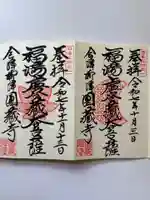 奉拝
令和七年十月十三日
福満虚空蔵大菩薩
会津柳津
圓蔵寺
奉拝
令和七年十月十三日
福満虚空蔵大菩薩
会津柳津
圓蔵寺